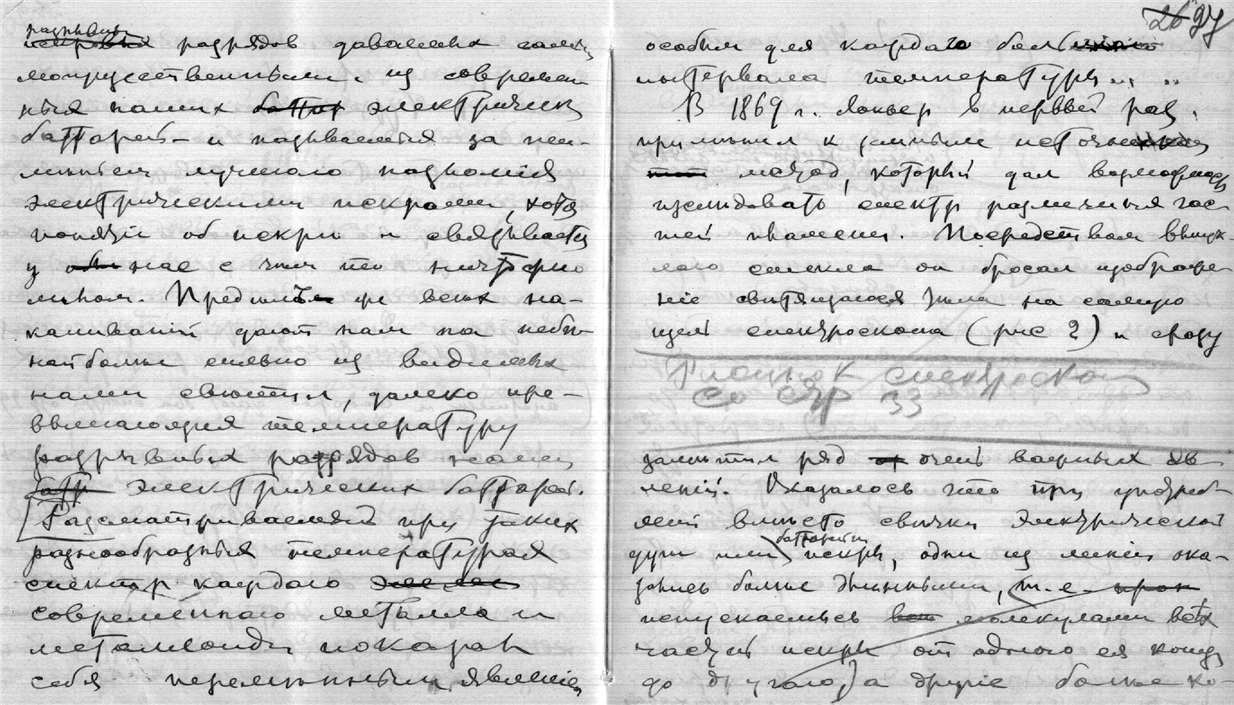 разрывныхъ
разрядов даваемых
могущественными из современ
ных наших электрическ
баттарей и называемыя за неи-
мѣнiем лучшаго названiя
электрическими искрами, хотя
понятiе об искрѣ и связывается
у нас с чѣм то
Предѣл же всех на-
каливанiй дают нам на небѣ
наиболѣе из видимых
нами свѣтил, далеко пре-
вышающiя температуру
разрывных разрядов наших
электрических баттарей.
Разсматриваемый при таких
разнообразных температурах
спектр каждаго
современнаго металла и
металлоида показал
себя перемѣнным явленiем
26 97
особым для каждаго больш
интервала температуры
В 1869 г. Локьер в первый раз
примѣнил к данным источни
метод, который дал возможность
изслѣдовать спектр различных час-
тей пламени. Посредством выпук
лаго стекла он бросал изображе
нiе свѣтящагося на самую
щель спектроскопа (рис 2) и сразу
Рисунок спектроскоп
со стр 33
замѣтил ряд очень важных яв
ленiй. Оказалось что при употреб
ленiи вмѣсто свѣчки электрической
баттарейн
дуги или искры, одни из линiй ока-
зались болѣе длинными, (т. е.
испускаемыся молекулами всѣх
частей искры от одного ея конца
до другого) а другiе болѣе ко-